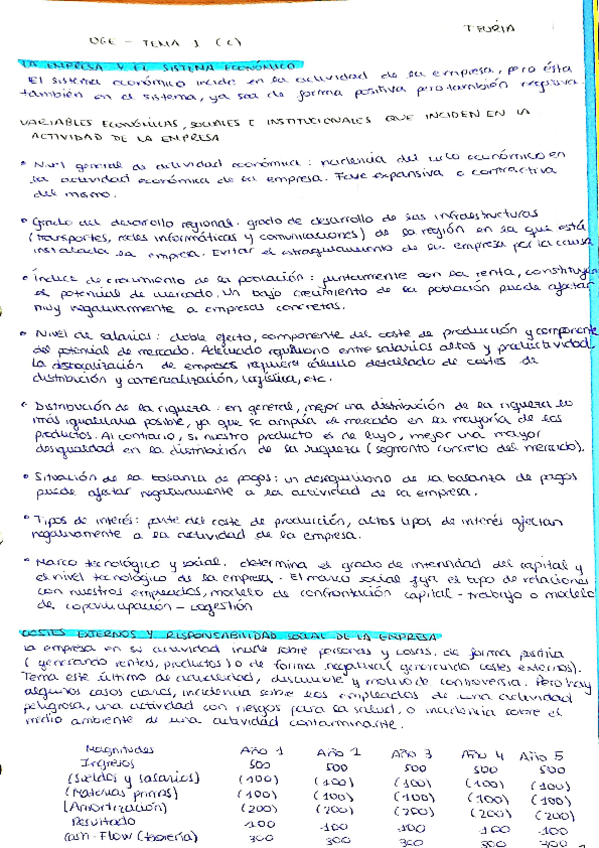 TEORÍA
OGE - TEMA 1 (C)
LA EMPRESA Y EL SISTEMA ECONÓMICO
El sistema económico incide en la actividad de la empresa, pero ésta
también en el sistema, ya sea de forma positiva pero también negativa
VARIABLES ECONÓMICAS, SOCIALES E INSTITUCIONALES QUE INCIDEN EN LA
ACTIVIDAD DE LA EMPRESA
• Nivel general de actividad económica: incidencia del ciclo económico en
la actividad económica de la empresa. Fase expansiva o contractiva
del mismo.
• Grado del desarrollo regional. grado de desarrollo de las infraestructuras
(transportes, redes informáticas y comunicaciones) de la región en la que está
instalada la empresa. Evitar el estrangulamiento de la empresa por la causa
• Índice de crecimiento de la población: juntamente con la renta, constituyen
el potencial de mercado. Un bajo crecimiento de la población puede afectar
muy negativamente a empresas concretas.
• Nivel de salarios: doble efecto, componente del coste de producción y componente
del potencial de mercado. Adecuado equilibrio entre salarios altos y productividad.
La deslocalización de empresas requiere cálculo detallado de costes de
distribución y comercialización, logística, etc.
• Distribución de la riqueza: en general, mejor una distribución de la riqueza lo
más igualitaria posible, ya que se amplía el mercado en la mayoría de los
productos. Al contrario, si nuestro producto es de lujo, mejor una mayor
desigualdad en la distribución de la riqueza (segmento concreto del mercado).
• Situación de la balanza de pagos: un desequilibrio de la balanza de pagos
puede afectar negativamente a la actividad de la empresa.
• Tipos de interés: parte del coste de producción, altos tipos de interés afectan
negativamente a la actividad de la empresa.
• Marco tecnológico y social. determina el grado de intensidad del capital y
el nivel tecnológico de la empresa. El marco social fija el tipo de relaciones
con nuestros empleados, modelo de confrontación capital-trabajo o modelo
de coparticipación - cogestión
COSTES EXTERNOS Y RESPONSABILIDAD SOCIAL DE LA EMPRESA
La empresa en su actividad incide sobre personas y cosas, de forma positiva
(generando rentas, productos) o de forma negativa (generando costes externos).
Tema este último de actualidad, discutible y motivo de controversia. Pero hay
algunos casos claros, incidencia sobre los empleados de una actividad
peligrosa, una actividad con riesgos para la salud, o incidencia sobre el
medio ambiente de una actividad contaminante.
Magnitudes Año 1 Año 2 Año 3 Año 4 Año 5
Ingresos 500 500 500 500 500
(Sueldos y salarios) (100) (100) (100) (100) (100)
(Materias primas) (100) (100) (100) (100) (100)
(Amortización) (200) (200) (200) (200) (200)
Resultado 100 100 100 100 100
Cash-Flow (tesorería) 300 300 300 300 300